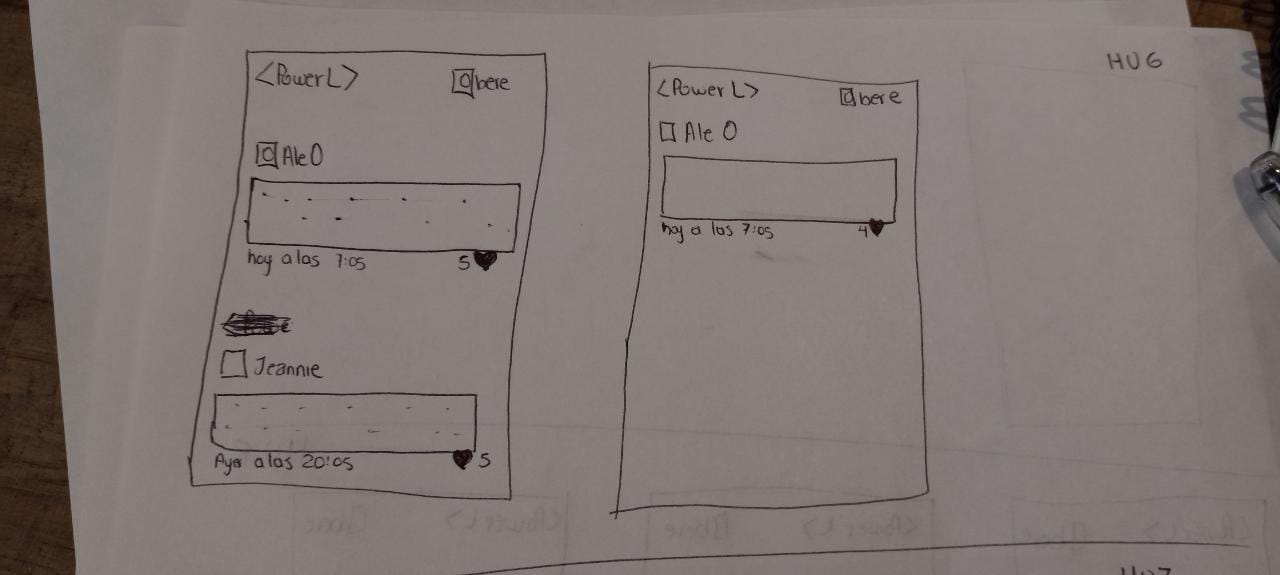 HU6
<PowerL> bere
Ale O
hoy a las 7:05 5
Jeannie
Ayer a las 20:05 5
<PowerL> bere
Ale O
hoy a las 7:05 4
HU7